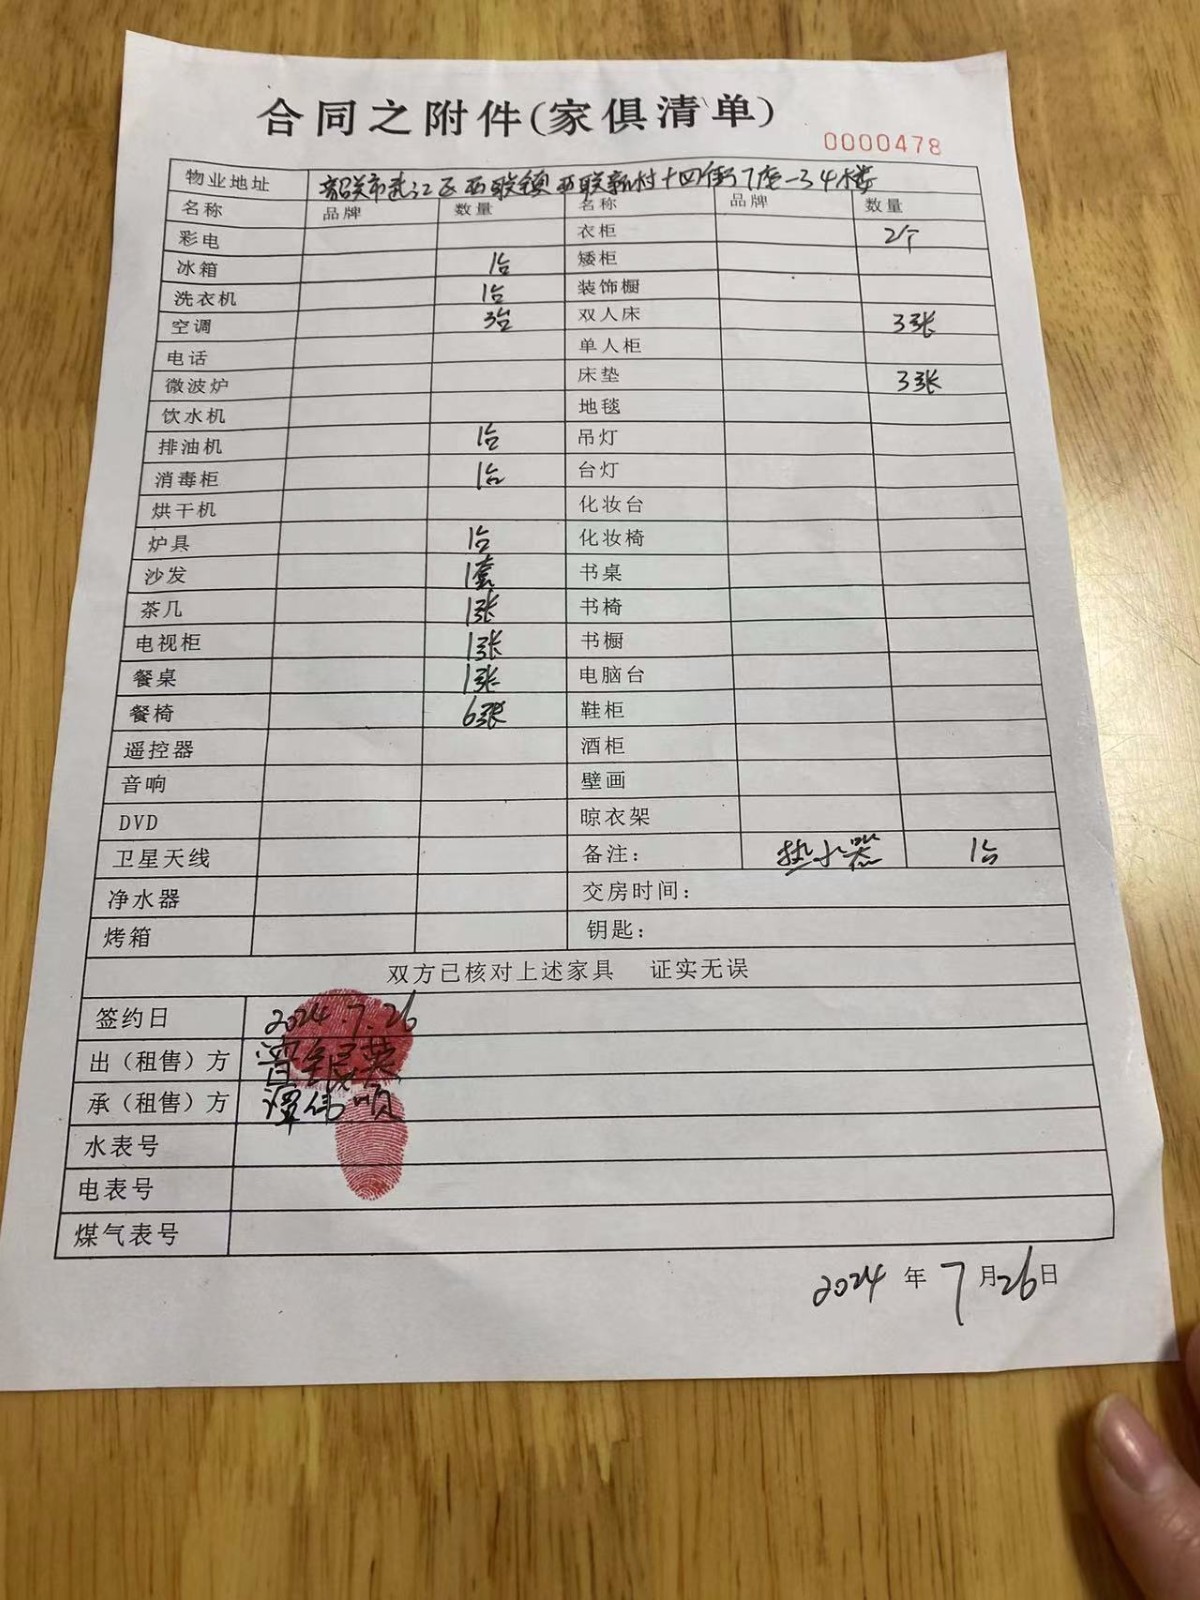 合同之附件(家俱清单)
0000478
物业地址 韶关市武江区西联镇西联新村十四街7座一34楼
名称 品牌 数量 名称 品牌 数量
彩电 衣柜 2个
冰箱 1台 矮柜
洗衣机 1台 装饰橱
空调 3台 双人床 3张
电话 单人柜
微波炉 床垫 3张
饮水机 地毯
排油机 1台 吊灯
消毒柜 1台 台灯
烘干机 化妆台
炉具 1台 化妆椅
沙发 1套 书桌
茶几 1张 书椅
电视柜 1张 书橱
餐桌 1张 电脑台
餐椅 6张 鞋柜
遥控器 酒柜
音响 壁画
DVD 晾衣架
卫星天线 备注: 热水器 1台
净水器 交房时间:
烤箱 钥匙:
双方已核对上述家具 证实无误
签约日 2024.7.26
出(租售)方 曾银英
承(租售)方 谭伟顺
水表号
电表号
煤气表号
2024 年 7 月 26 日